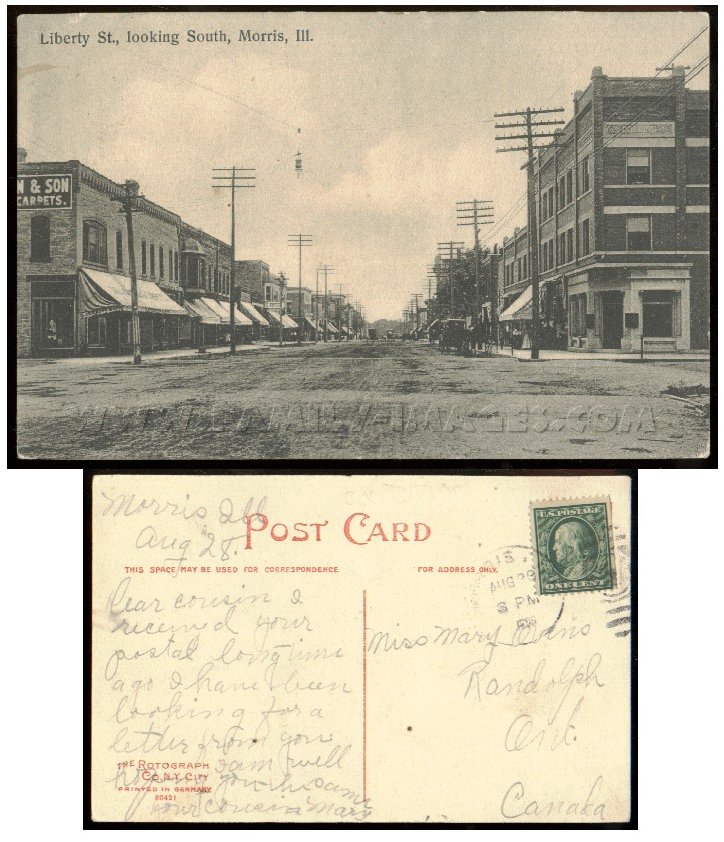 Liberty St., looking South, Morris, Ill.
N & SON
CARPETS.
WWW.FAMILY-IMAGES.COM
Morris Ill
Aug 28.
POST CARD
THIS SPACE MAY BE USED FOR CORRESPONDENCE
FOR ADDRESS ONLY.
U.S. POSTAGE
ONE CENT
AUG 29
8 PM
Dear cousin I
received your
postal long time
ago I have been
looking for a
letter from you
I am well
hoping you the same
your cousin Mary
Miss Mary Evans
Randolph
Ont.
Canada
THE ROTOGRAPH
CO. N.Y. CITY
PRINTED IN GERMANY
60421